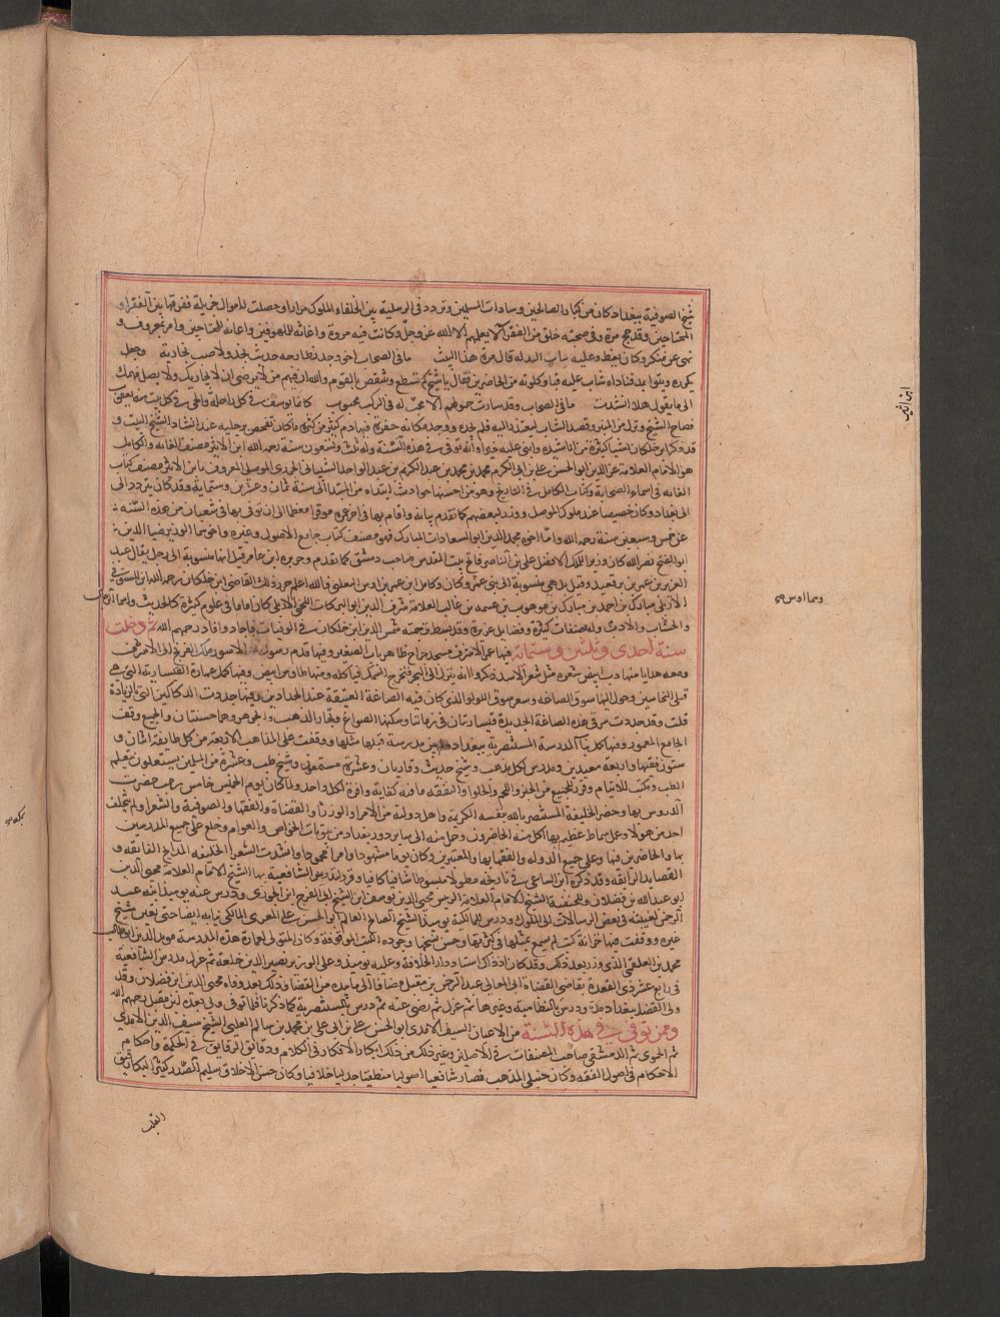 شيخ الصوفية ببغداد كان من كبار الصالحين وسادات المسلمين وتردد في الرسلية بين الخلفاء والملوك مرارا وحصلت له اموال جزيلة ففرقها بين الفقراء و
المحتاجين وقد حج مرة وفي صحبته خلق من الفقراء لا يعلمهم الا الله عز وجل وكانت فيه مروة واغاثة للملهوفين واعانة للمحتاجين وامر بمعروف و
نهي عن منكر وكان يعظ وعليه ثياب البذلة قال مرة هذا البيت ما في الصحاب اخو وجد نطارحه حديث نجد ولا صب نجاريه وجعل
يكرره ويتواجد فناداه شاب عليه قبا وكلوته من الحاضرين فقال يا شيخ كم تشطح وتنتقص بالقوم والله ان فيهم من لا يرضى ان لا يجاريك ولا يصل فهمك
الى ما يقول هلا انشدت ما في الصحاب وقد سارت حمولهم الا محب له في الركب محبوب كانما يوسف في كل راحلة والحي في كل بيت منه يعقوب
فصاح الشيخ ونزل من المنبر وقصد الشاب ليعتذر اليه فلم يجده ووجد مكانه حفرة فيها دم كثير من كثرة ما كان يفحص برجليه عند انشاد الشيخ البيت و
قد ذكر ابن خلكان اشيا كثيرة من اناشيده واثنى عليه خيرا وانه توفي في هذه السنة وله ثلث وتسعون سنة رحمه الله ابن الاثير مصنف الغابه والكامل
هو الامام العلامة عز الدين ابو الحسن علي بن ابي الكرم محمد بن محمد بن عبد الكريم بن عبد الواحد الشيباني الجزري الموصلي المعروف بابن الاثير مصنف كتاب
الغابه في اسماء الصحابة وكتاب الكامل في التاريخ وهو من احسنها حوادث ابتداه من المبتدا الى سنة ثمان وعشرين وستماية وقد كان يتردد الى
الى بغداد وكان خصيصا عند ملوك الموصل ووزر لبعضهم كما تقدم بيانه واقام بها في اخر عمره موقرا معظما الى ان توفي بها في شعبان من هذه السنة
عن خمس وسبعين سنة رحمه الله واما اخوه مجد الدين ابو السعادات المبارك فهو مصنف كتاب جامع الاصول وغيره واخوهما الوزير ضيا الدين
ابو الفتح نصر الله كان وزير الملك الافضل علي بن الناصر فاتح بيت المقدس صاحب دمشق كما تقدم وجزيرة ابن عمر قيل انها منسوبة الى رجل يقال عبد
العزيز بن عمر من برقعيد وقيل بل هي منسوبة الى ابني عمر وكان وكامل ابن عمر بن اوس التغلبي فالله اعلم حرر ذلك القاضي ابن خلكان رحمه الله ابن المستوفي
الاربلي مبارك بن احمد بن مبارك بن موهوب بن غنيمة بن غالب العلامة شرف الدين ابو البركات اللخمي الاربلي كان اماما في علوم كثيرة كالحديث واسما الرجال
والحساب والادب وله مصنفات كثيرة وفضايل غزيرة وقد بسط ترجمته شمس الدين ابن خلكان في الوفيات فاجاد وافاد رحمهم الله ثم دخلت
سنة احدى وثلثين وستماية فيها عمر الاشرف مسجد جراح ظاهر باب الصغير وفيها قدم رسول الانبرور ملك الفرنج الى الاشرف
ومعه هدايا منها دب ابيض شعره مثل شعر الاسد ذكروا انه ينزل الى البحر فيخرج السمك فياكله ومنها طاوس ابيض وفيها كمل عمارة القيسارية التي هي
قبلي النحاسين وحول اليها سوق الصاغه وسعر سوق اللولو الذي كان فيه الصاغة العتيقة عند الحدادين وفيها جددت الدكاكين التي بالزيادة
قلت وقد جددت شرقي هذه الصاغة الجديدة قيساريتان في زماننا وسكنها الصواغ وتجار الذهب والجوهر وهما حسنتان والجميع وقف
الجامع المعمور وفيها كمل بنا المدرسة المستنصرية ببغداد ولم يبن مدرسة قبلها مثلها ووقفت على المذاهب الاربعة من كل طايفة اثنان و
ستون فقيها واربعة معيدين ومدرس لكل مذهب وشيخ حديث وقاريان وعشرة مستمعين وشيخ طب وعشرة من المسلمين يشتغلون بعلم
الطب ومكتب للايتام وقرر للجميع من الخبز واللحم والحلوا والنفقه ما فيه كفاية وافرة لكل واحد ولما كان يوم الخميس خامس رجب حضرت
الدروس بها وحضر الخليفة المستنصر بالله بنفسه الكريمة واهل دولته من الامرا والوزرا والقضاة والفقها والصوفية والشعرا ولم يتخلف
احد من هولا وعمل سماط عظيم بها اكل منه الحاضرون وحمل منه الى ساير دور بغداد من بيوتات الخواص والعوام وخلع على جميع المدرسين
بها والحاضرين فيها وعلى جميع الدوله والفقها بها والمعيدين وكان يوما مشهودا وامرا محمودا وانشدت الشعرا الخليفه المدايح الفايقه و
القصايد الرايقه وقد ذكره ابن الساعي في تاريخه مطولا مبسوطا شافيا كافيا وقرر لتدريس الشافعية بها الشيخ الامام العلامة محيي الدين
ابو عبد الله بن فضلان وللحنفية الشيخ الامام العلامة الرئيس محيي الدين يوسف ابن الشيخ ابي الفرج ابن الجوزي ودرس عنه يومئذ ابنه عبد
الرحمن لغيبته في بعض الرسالات الى الملوك ودرس للمالكية يومئذ الشيخ الصالح العالم ابو الحسن علي المغربي المالكي نيابه ايضا حتى يعين شيخ
غيره ووقفت فيها خزانة كتب لم يسمع بمثلها في كثرتها وحسن نسخها وجودة الكتب الموقوفة وكان المتولي لعمارة هذه المدرسة مويد الدين ابو طالب
محمد بن العلقمي الذي وزر بعد ذلك وقد كان اذ ذاك استاد دار الخلافة وخلع عليه يومئذ وعلى الوزير نصير الدين خلعة ثم عزل مدرس الشافعية
في رابع عشر ذي القعدة بقاضي القضاة ابي المعالي عبد الرحمن بن مقبل مضافا الى ما بيده من القضا وذلك بعد وفاة محيي الدين ابن فضلان وقد
ولي القضا ببغداد مدة ودرس بالنظامية وغيرها ثم عزل ثم رضي عنه ثم درس بالمستنصرية كما ذكرنا فلما توفي ولي بعده ابن مقبل رحمهم الله
وممن توفي في هذه السنة من الاعيان السيف الامدي ابو الحسن علي بن ابي علي بن محمد بن سالم الثعلبي الشيخ سيف الدين الامدي
ثم الحموي ثم الدمشقي صاحب المصنفات في الاصلين وغير ذلك من ذلك ابكار الافكار في الكلام ودقايق الرقايق في الحكمة واحكام
الاحكام في اصول الفقه وكان حنبلي المذهب فصار شافعيا اصوليا منطقيا جدليا خلافيا وكان حسن الاخلاق سليم الصدر كثير البكا رقيق
القلب
ابن اثير